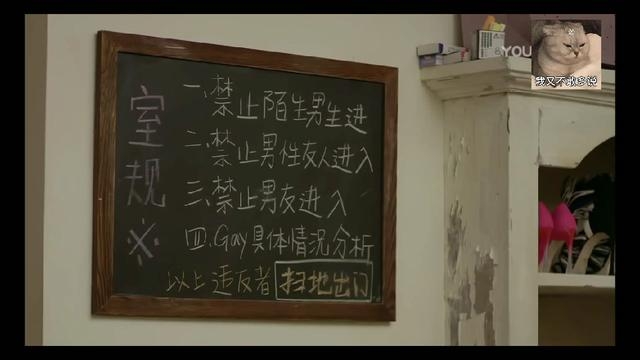 室规※
一、禁止陌生男生进
二、禁止男性友人进入
三、禁止男友进入
四、Gay具体情况分析
以上违反者 扫地出门
YOU
我又不敢多说